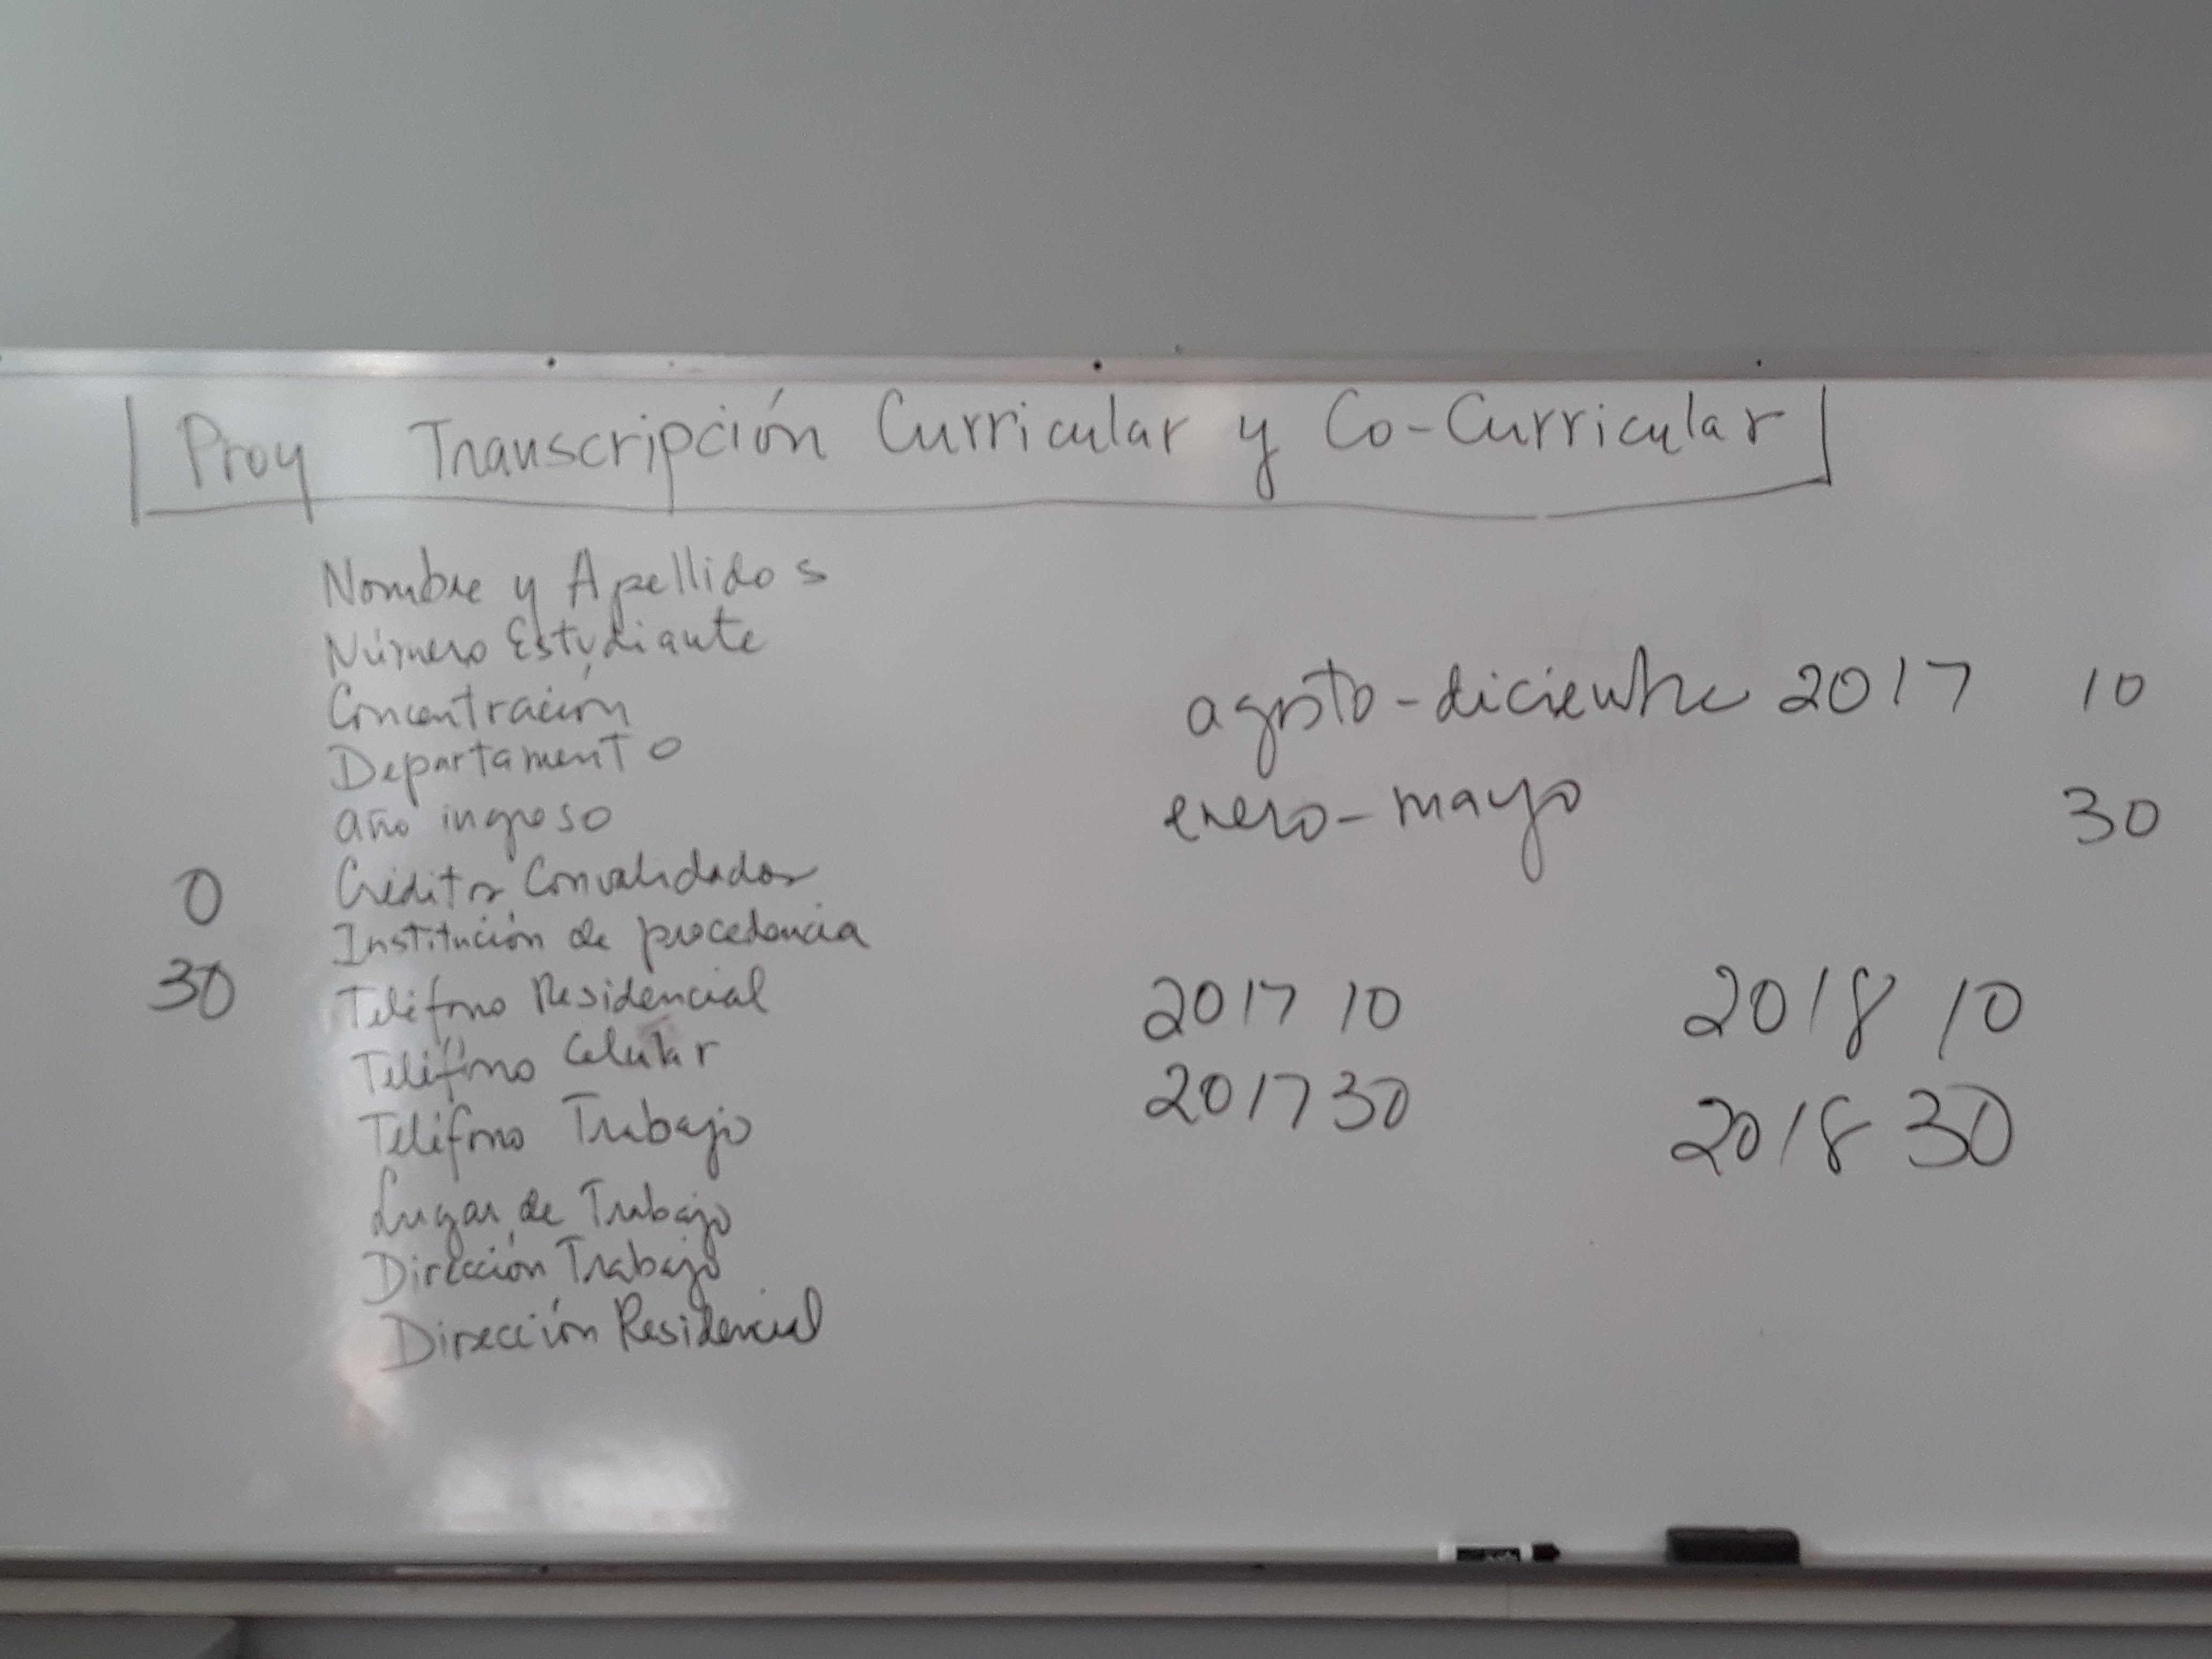 Proy Transcripción Curricular y Co-Curricular
Nombre y Apellidos
Número Estudiante
Concentración
Departamento
año ingreso
0 Créditos Convalidados
Institución de procedencia
30 Teléfono Residencial
Teléfono Celular
Teléfono Trabajo
Lugar de Trabajo
Dirección Trabajo
Dirección Residencial
agosto-diciembre 2017 10
enero-mayo 30
2017 10 2018 10
2017 30 2018 30